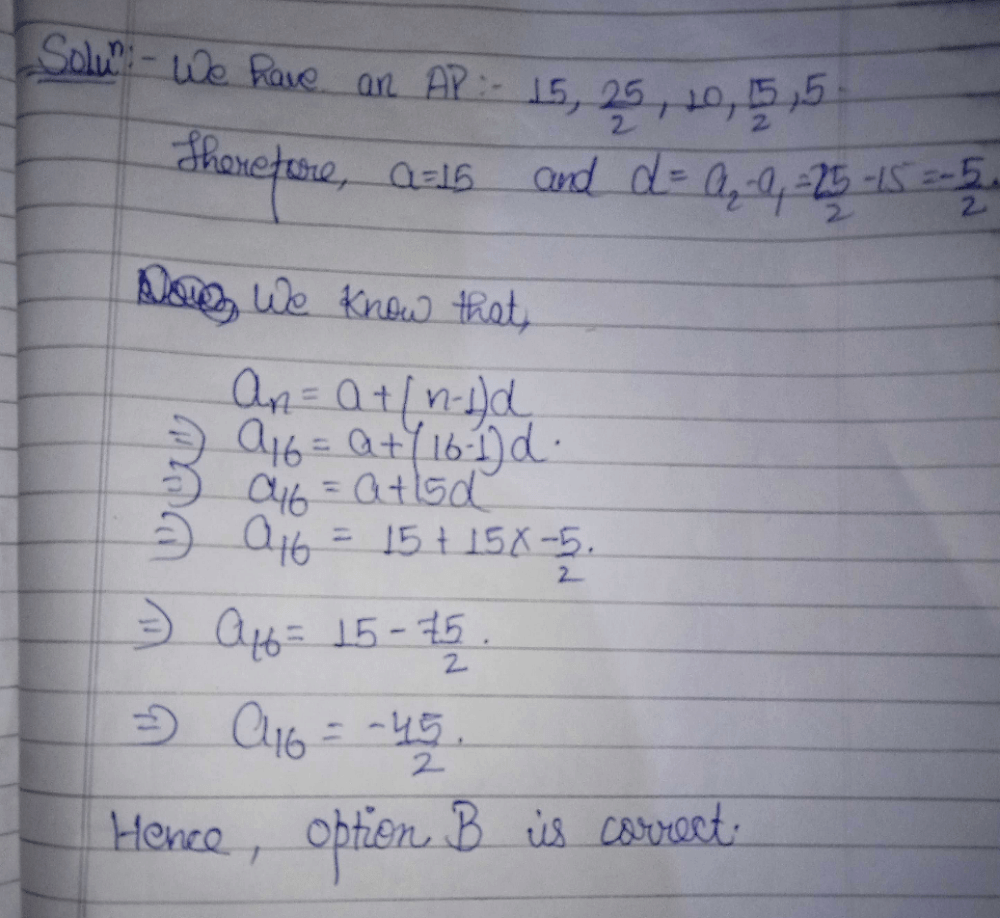 Soluⁿ:- We have an AP:- 15, 25/2, 10, 15/2, 5
Therefore, a=15 and d= a₂-a₁ = 25/2 -15 = -5/2.
Now, We know that,
an = a+(n-1)d
⇒ a16 = a+(16-1)d.
⇒ a16 = a+15d
⇒ a16 = 15 + 15x -5/2.
⇒ a16 = 15 - 75/2.
⇒ a16 = -45/2.
Hence, option B is correct.